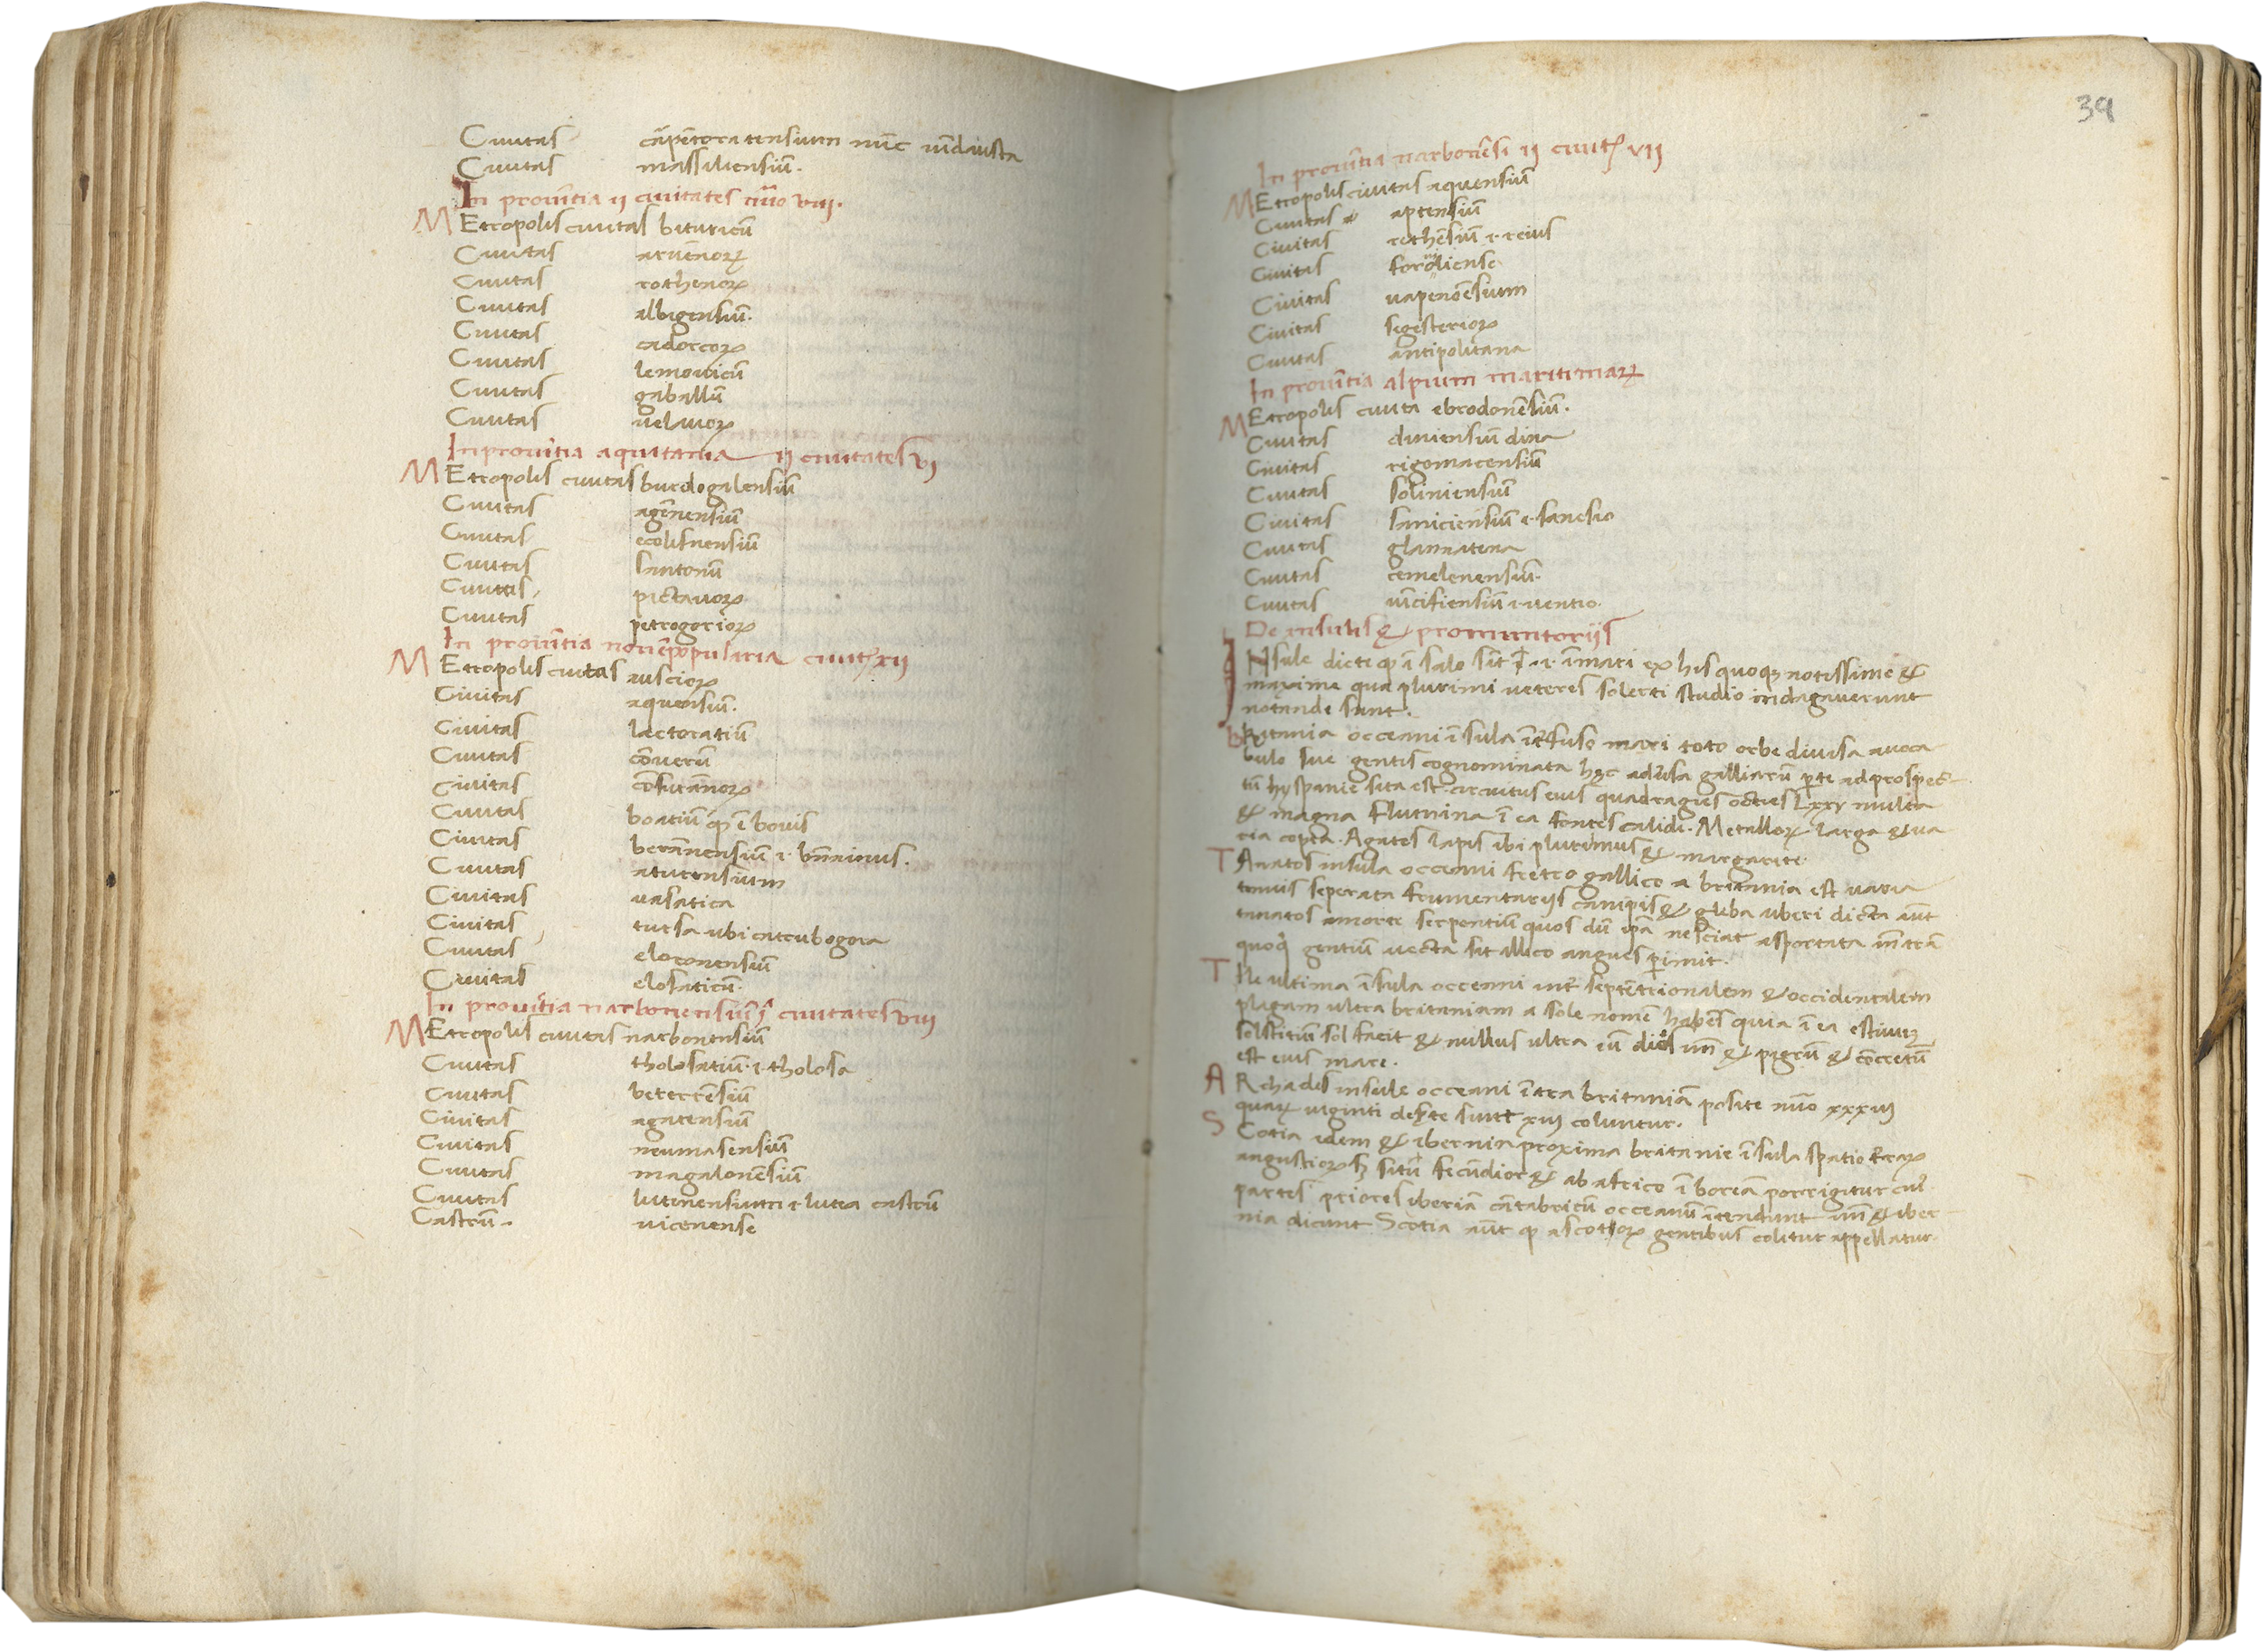 Ciuitas cāpētoratensium nūc uīdausta
Ciuitas massiliensiū.
In prouītia ii ciuitates nūo viii.
MEtropolis ciuitas bituricū
Ciuitas aruēnoꝝ
Ciuitas rothenoꝝ
Ciuitas albigensiū.
Ciuitas cadorcoꝝ
Ciuitas lemouicū
Ciuitas gaballū
Ciuitas uelauoꝝ
In prouītia aquitania ii ciuitates vi
MEtropolis ciuitas burdogalensiū
Ciuitas agēnensiū
Ciuitas ecolisnensiū
Ciuitas santonū
Ciuitas pictauoꝝ
Ciuitas petrogorioꝝ
In prouītia nouēpopularia ciuitꝭ xii
MEtropolis ciuitas auscioꝝ
Ciuitas aquensiū.
Ciuitas lactoratiū
Ciuitas cōuerū
Ciuitas cōsurānoꝝ
Ciuitas boatiū qđ ē bouis
Ciuitas berānensiū .i. bn̄arnus.
Ciuitas aturensium
Ciuitas uasatica
Ciuitas tursa ubi castrubogora
Ciuitas eloronensiū
Ciuitas elosaticū.
In prouītia narbonensiū i ciuitates viii
MEtropolis ciuitas narbonensiū
Ciuitas tholosatiū .i. tholosa
Ciuitas beterrēsiū
Ciuitas agatensiū
Ciuitas neumasensiū
Ciuitas magalonēsiū
Ciuitas lutinensium .i. lutea castrū
Castrū. uicenense
39
In prouītia narbonēsi ii ciuitꝭ vii
MEtropolis ciuitas aquensiū
Ciuitas aptensiū
Ciuitas rethēsiū .i. reius
Ciuitas foroiuliense
Ciuitas uapencēsium
Ciuitas segesterioꝝ
Ciuitas antipolitana
In prouītia alpium maritimaꝝ
MEtropolis ciuita ebrodonēsiū.
Ciuitas diniensiū dina
Ciuitas rigomacensiū
Ciuitas soliniensiū
Ciuitas saniciensiū .i. sanesio
Ciuitas glannatena
Ciuitas cemelenensiū.
Ciuitas uīcisiensiū .i. uentio.
De insulis & promuntorijs
INsule dicte qđ ī salo sīt .i. ī mari ex his quoqꝫ notissime &
maxime qua plurimi ueteres solerti studio indagauerunt
notande sunt.
BRitania occeani īsula īt̄fuso mari toto orbe diuisa a uoca
bulo sue gentis cognominata hęc aduersa galliarū parte ad prospec
tū hyspanie sita est. circuitus eius quadragies octies Lxxv multa
& magna flumina ī ea fontes calidi. Metalloꝝ larga & ua
ria copia. Agates lapis ibi plurimus & margarite.
TAnatos insula occeani fretro gallico a britania est uaria
tenuis seperata frumentarijs campis & gleba uberi dicta aūt
tanatos a morte serpentiū quos dū ipa nesciat asportata īn trā
quoq gentiū uecta sit allico angues perimit.
TIle ultima īsula occeani inter septētrionalem & occidentalem
plagam ultra britaniam a sole nomē habēs quia ī ea estiuuꝫ
solstitiū sol facit & nullus ultra eū dies un̄ & pigrū & cōcretū
est eius mare.
ARchades insule occeani ītra britaniā posite nūo xxxiii
quaꝝ uiginti deserte sunt xiii coluntur.
SCotia idem & ibernia proxima britanie īsula spatio terraꝝ
angustior sꝫ situ fecūdior & ab africo ī boreā porrigitur cui
partes priores iberiā cātabricū occeanū ītendunt un̄ & iber
nia dicunt Scotia aūt qđ a scotoꝝ gentibus colitur appellatur.